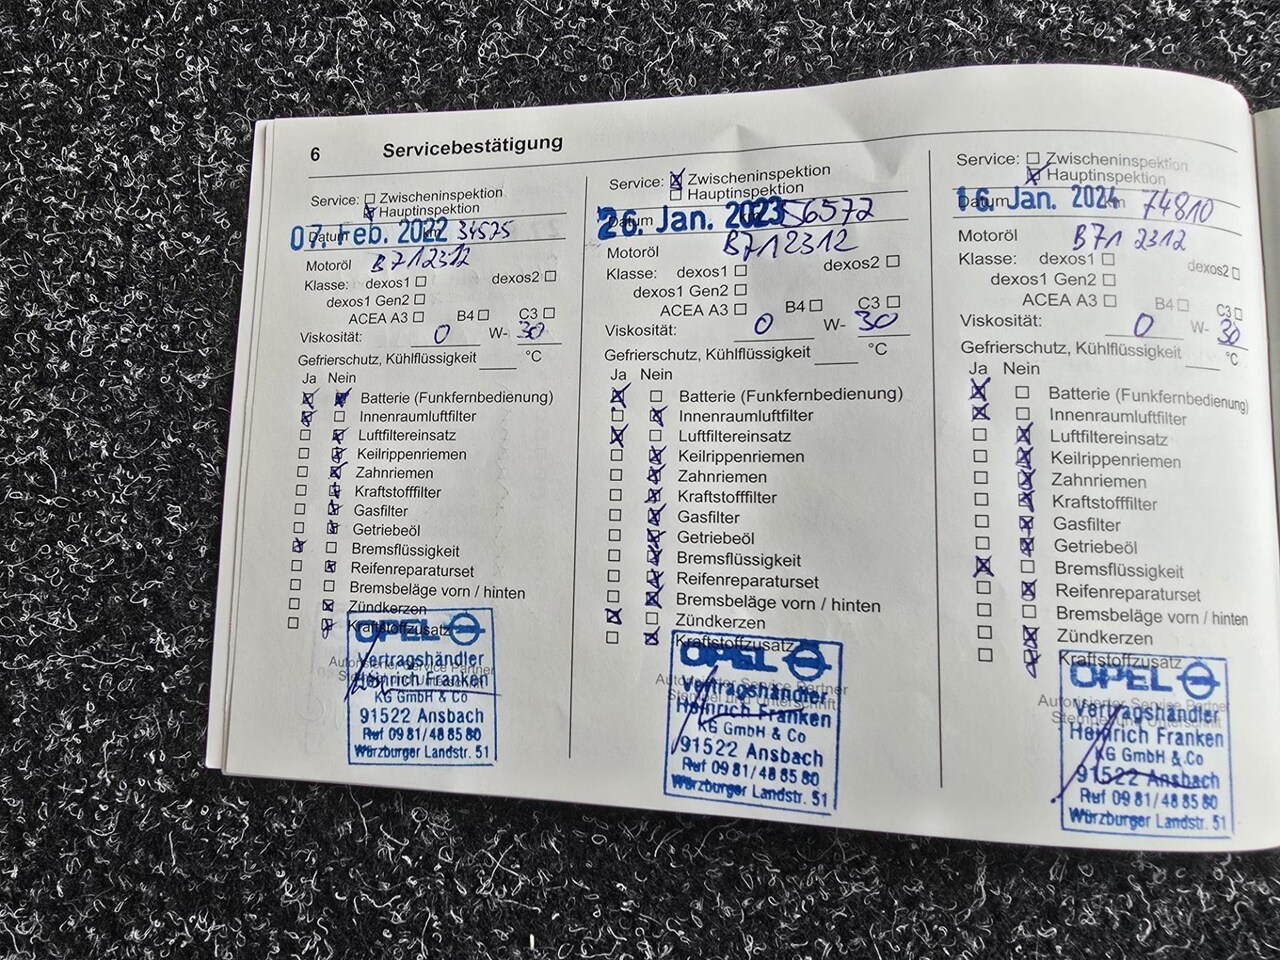 6 Servicebestätigung
Service: Zwischeninspektion
Hauptinspektion
Datum 07. Feb. 2022 km 34525
Motoröl B712312
Klasse: dexos1 dexos2
dexos1 Gen2
ACEA A3 B4 C3
Viskosität: 0 W- 30
Gefrierschutz, Kühlflüssigkeit °C
Ja Nein
Batterie (Funkfernbedienung)
Innenraumluftfilter
Luftfiltereinsatz
Keilrippenriemen
Zahnriemen
Kraftstofffilter
Gasfilter
Getriebeöl
Bremsflüssigkeit
Reifenreparaturset
Bremsbeläge vorn / hinten
Zündkerzen
Kraftstoffzusatz
Autorisierter Service Partner
OPEL
Vertragshändler
Heinrich Franken
KG GmbH & Co
91522 Ansbach
Ruf 09 81 / 48 85 80
Würzburger Landstr. 51
Service: Zwischeninspektion
Hauptinspektion
Datum 26. Jan. 2023 56572
Motoröl B712312
Klasse: dexos1 dexos2
dexos1 Gen2
ACEA A3 B4 C3
Viskosität: 0 W- 30
Gefrierschutz, Kühlflüssigkeit °C
Ja Nein
Batterie (Funkfernbedienung)
Innenraumluftfilter
Luftfiltereinsatz
Keilrippenriemen
Zahnriemen
Kraftstofffilter
Gasfilter
Getriebeöl
Bremsflüssigkeit
Reifenreparaturset
Bremsbeläge vorn / hinten
Zündkerzen
Kraftstoffzusatz
Autorisierter Service Partner
Stempel und Unterschrift
OPEL
Vertragshändler
Heinrich Franken
KG GmbH & Co
91522 Ansbach
Ruf 09 81 / 48 85 80
Würzburger Landstr. 51
Service: Zwischeninspektion
Hauptinspektion
Datum 16. Jan. 2024 km 74810
Motoröl B71 2312
Klasse: dexos1 dexos2
dexos1 Gen2
ACEA A3 B4 C3
Viskosität: 0 W- 30
Gefrierschutz, Kühlflüssigkeit °C
Ja Nein
Batterie (Funkfernbedienung)
Innenraumluftfilter
Luftfiltereinsatz
Keilrippenriemen
Zahnriemen
Kraftstofffilter
Gasfilter
Getriebeöl
Bremsflüssigkeit
Reifenreparaturset
Bremsbeläge vorn / hinten
Zündkerzen
Kraftstoffzusatz
Autorisierter Service Partner
OPEL
Vertragshändler
Heinrich Franken
KG GmbH & Co
91522 Ansbach
Ruf 09 81 / 48 85 80
Würzburger Landstr. 51